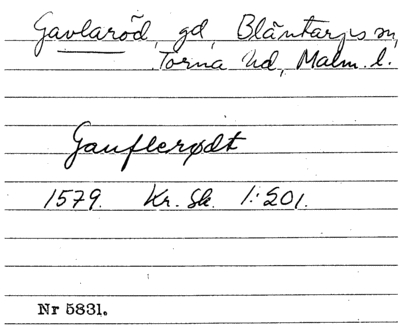 Gavlaröd, gd, Bläntarps sn,
Torna hd, Malm. l.
Gauflerødt
1579. Kr. Sk. 1:201.
Nr 5831.